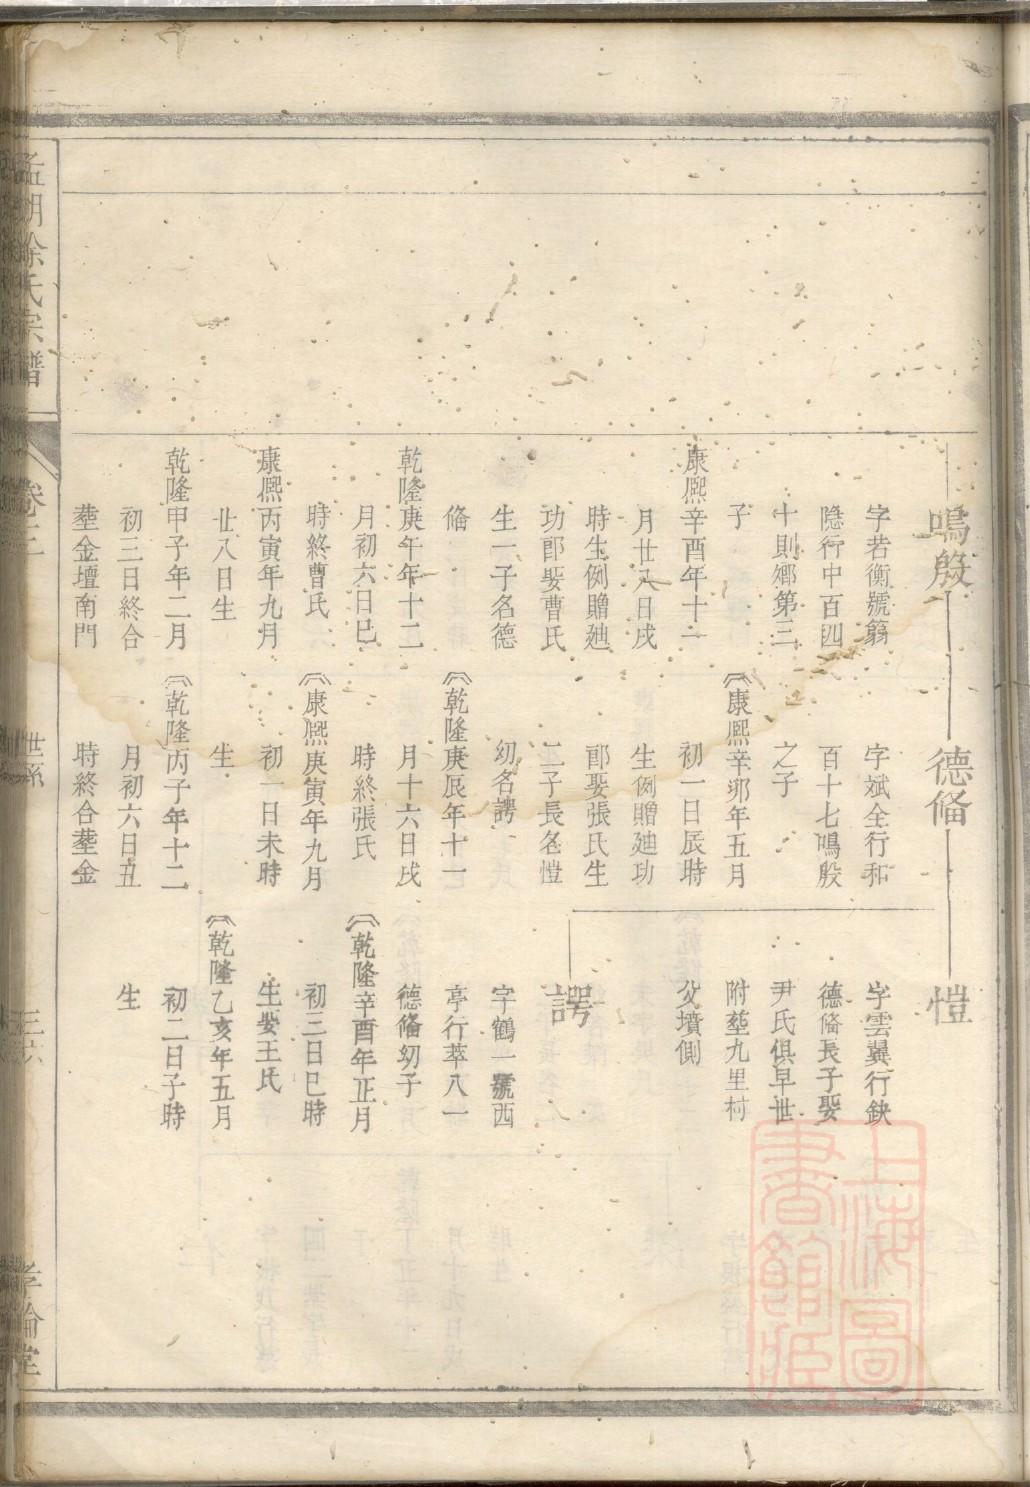 鳴殷
字若衡號翁
隐行中百四
十則鄉第三
子
康熙辛酉年十二
月廿八日戌
時生例贈廸
功郎娶曹氏
生一子名德
脩
乾隆庚午年十二
月初六日巳
時終曹氏
康熙丙寅年九月
廿八日生
乾隆甲子年二月
初三日終合
塟金壇南門
德脩
字斌全行和
百十七鳴殷
之子
康熙辛卯年五月
初一日辰時
生例贈廸功
郎娶張氏生
二子長名愷
幼名諤
乾隆庚辰年十一
月十六日戌
時終張氏
康熙庚寅年九月
初一日未時
生
乾隆丙子年十二
月初六日丑
時終合塟金
愷
字雲翼行鈌
德脩長子娶
尹氏俱早世
附塟九里村
父墳側
諤
字鶴一號西
亭行萃八一
德脩幼子
乾隆辛酉年正月
初三日巳時
生娶王氏
乾隆乙亥年五月
初二日子時
生
孟湖徐氏宗譜
卷二
世系
三六
孝倫堂
上海圖
書館藏